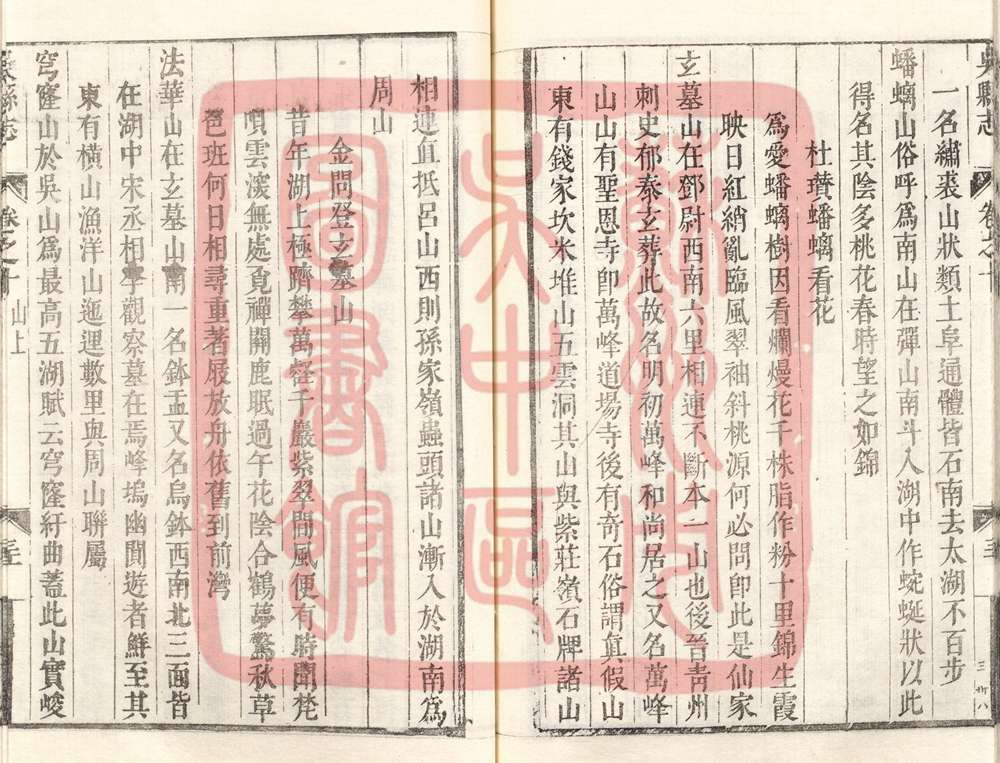 吳縣志
卷之十
一名繡裘山狀類土阜通體皆石南去太湖不百步
蟠螭山俗呼爲南山在彈山南斗入湖中作蜿蜒狀以此
得名其陰多桃花春時望之如錦
杜瓚蟠螭看花
爲愛蟠螭樹因看爛熳花千株脂作粉十里錦生霞
映日紅綃亂臨風翠袖斜桃源何必問卽此是仙家
玄墓山在鄧尉西南六里相連不斷本一山也後晉靑州
刺史郁泰玄葬此故名明初萬峰和尚居之又名萬峰
山山有聖恩寺卽萬峰道場寺後有奇石俗謂眞假山
東有錢家坎米堆山五雲洞其山與紫莊嶺石牌諸山
相連直抵呂山西則孫家嶺蟲頭諸山漸入於湖南爲
周山
金問登玄墓山
昔年湖上極躋攀萬壑千巖紫翠間風便有時聞梵
唄雲深無處覓禪關鹿眠過午花陰合鶴夢驚秋草
色班何日相尋重著屐放舟依舊到前灣
法華山在玄墓山南一名鉢盂又名烏鉢西南北三面皆
在湖中宋丞相李觀察墓在焉峰塢幽閒遊者鮮至其
東有橫山漁洋山迤邐數里與周山聯屬
穹窿山於吳山爲最高五湖賦云穹窿紆曲蓋此山實峻
吳縣志
卷之十
山上